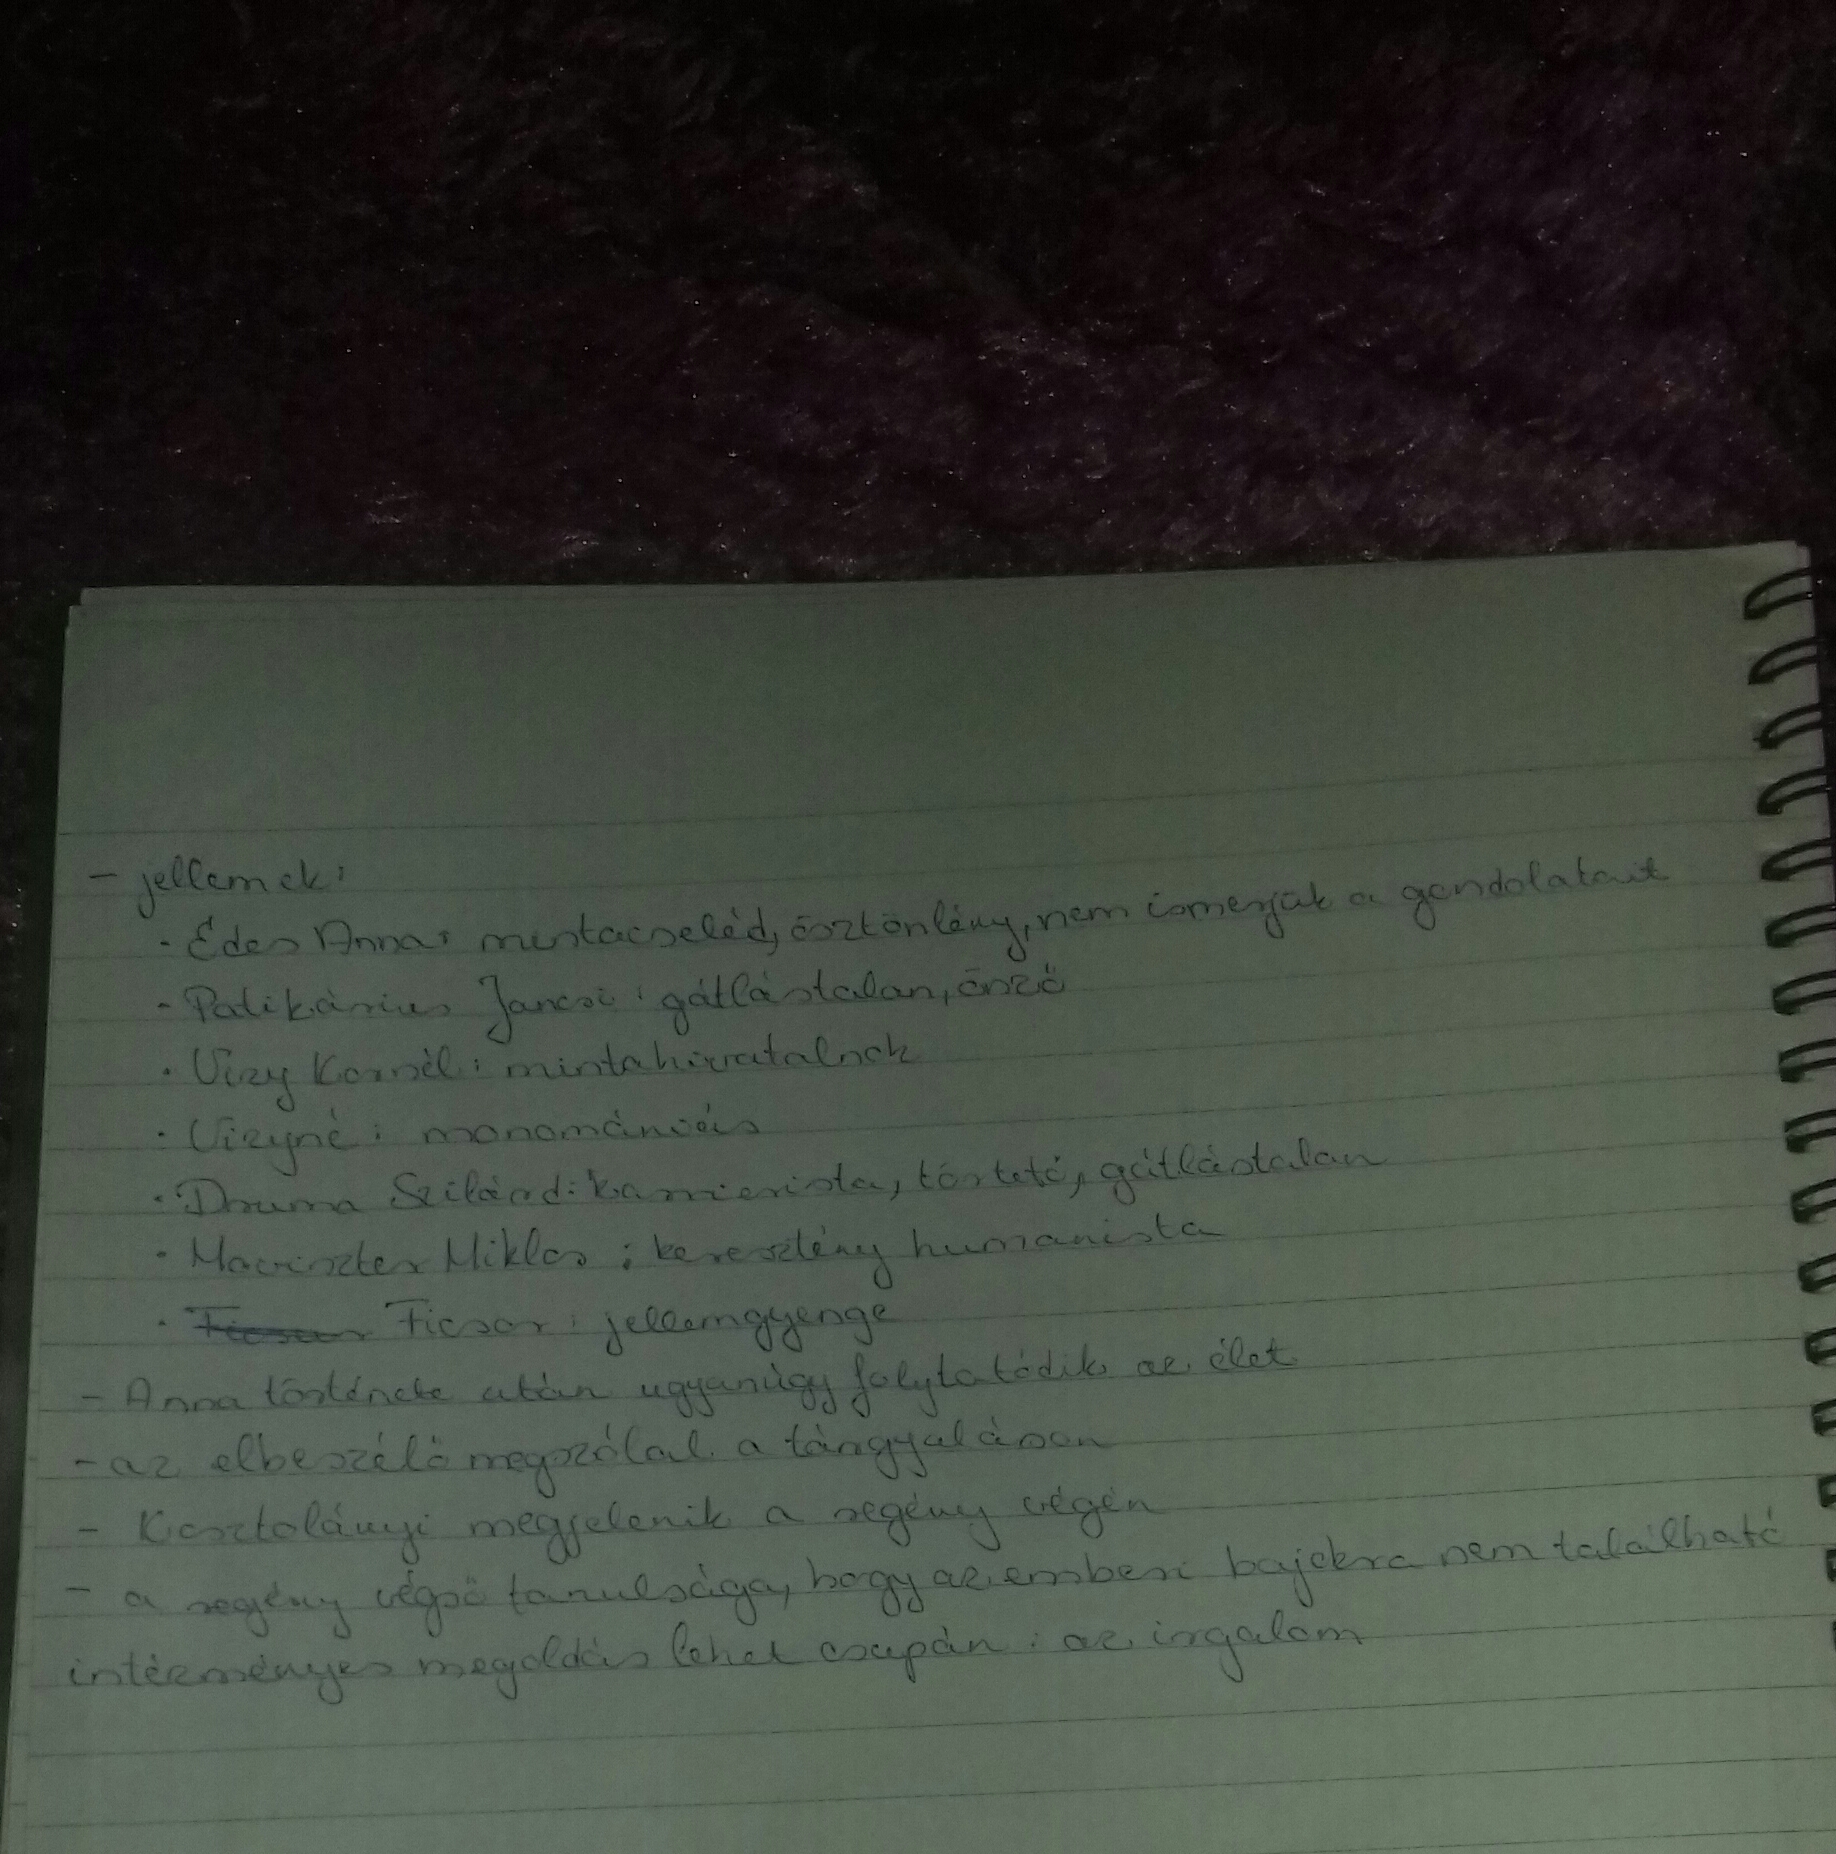 - jellemek:
· Édes Anna: mintacseléd, ösztönlény, nem ismerjük a gondolatait
· Patikárius Jancsi: gátlástalan, önző
· Vizy Kornél: mintahivatalnok
· Vizyné: monomániás
· Druma Szilárd: karrierista, törtető, gátlástalan
· Moviszter Miklós: keresztény humanista
· Ficsor: jellemgyenge
- Anna története után ugyanúgy folytatódik az élet
- az elbeszélő megszólal a tárgyaláson
- Kosztolányi megjelenik a regény végén
- a regény végső tanulsága, hogy az emberi bajokra nem található
intézményes megoldás lehet csupán: az irgalom